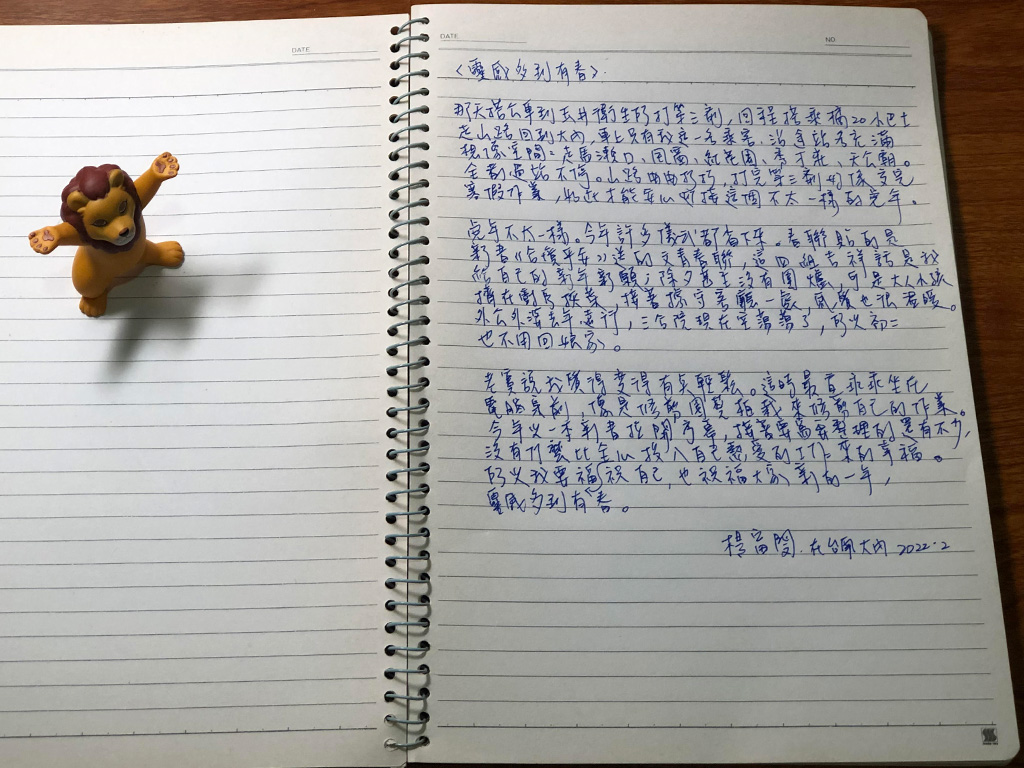 DATE
DATE
NO.
〈靈感多到有春〉
那天搭公車到玉井衛生所打第三劑,回程搭乘橘20小巴士
走山路回到大內,車上只有我這一名乘客,沿途站名充滿
想像空間:走馬瀨口、田窩、紅花園、天公廟。
全部過站不停。山路曲曲巧巧,打完第三劑好像寫完
寒假作業,如此才能安心迎接這個不太一樣的兔年。
年不太一樣。今年許多儀式都省下來。春聯貼的是
新書《合境平安》送的文青春聯,這四組吉祥話是我
給自己的新年新願;除夕甚至沒有圍爐,可是大人小孩
擠在,接著,氣氛也很溫暖。
外公外婆去年遠行,三合院現在空蕩蕩了,所以初二
也不用回娘家。
老實說我覺得變得有點輕鬆。這時最宜乖乖坐在
電腦桌前,像是修剪園藝植栽來修剪自己的作業。
今年以一本新書拉開序幕,接著要整理的還有不少,
沒有什麼比全心投入自己熱愛的工作來的幸福。
所以我要福祝自己,也祝福大家新的一年,
靈感多到有春。
楊富閔.在台南大內 2022.2